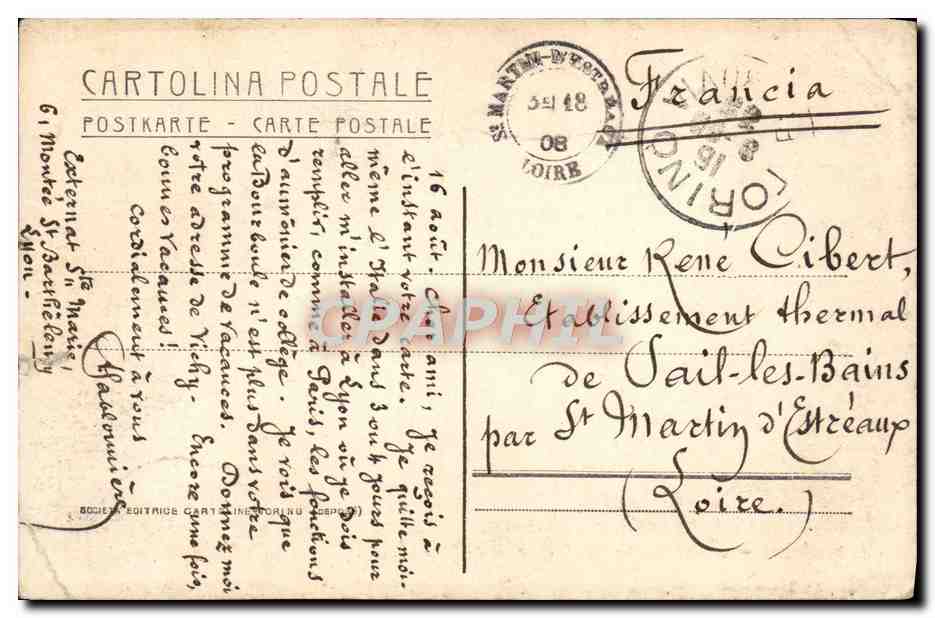 CARTOLINA POSTALE
POSTKARTE - CARTE POSTALE
Francia
St MARTIN-D'ESTREAUX
18
08
LOIRE
TORINO
16
Monsieur René Cibert,
Etablissement thermal
de Sail-les-Bains
par St Martin d'Estréaux
(Loire.)
16 août. Cher ami, Je reçois à
l'instant votre carte. Je quitte moi-
même l'Italie dans 3 ou 4 jours pour
aller m'installer à Lyon où je dois
remplir, comme à Paris, les fonctions
d'aumônier de collège. Je vois que
la Bourboule n'est plus dans votre
programme de vacances. Donnez moi
votre adresse de Vichy. Encore une fois,
bonnes vacances!
Cordialement à vous
Externat Ste Marie,
6, Montée St Barthélemy
Lyon.
SOCIETA EDITRICE CARTOLINE TORINO (DEPOSE)
CPAPHIL